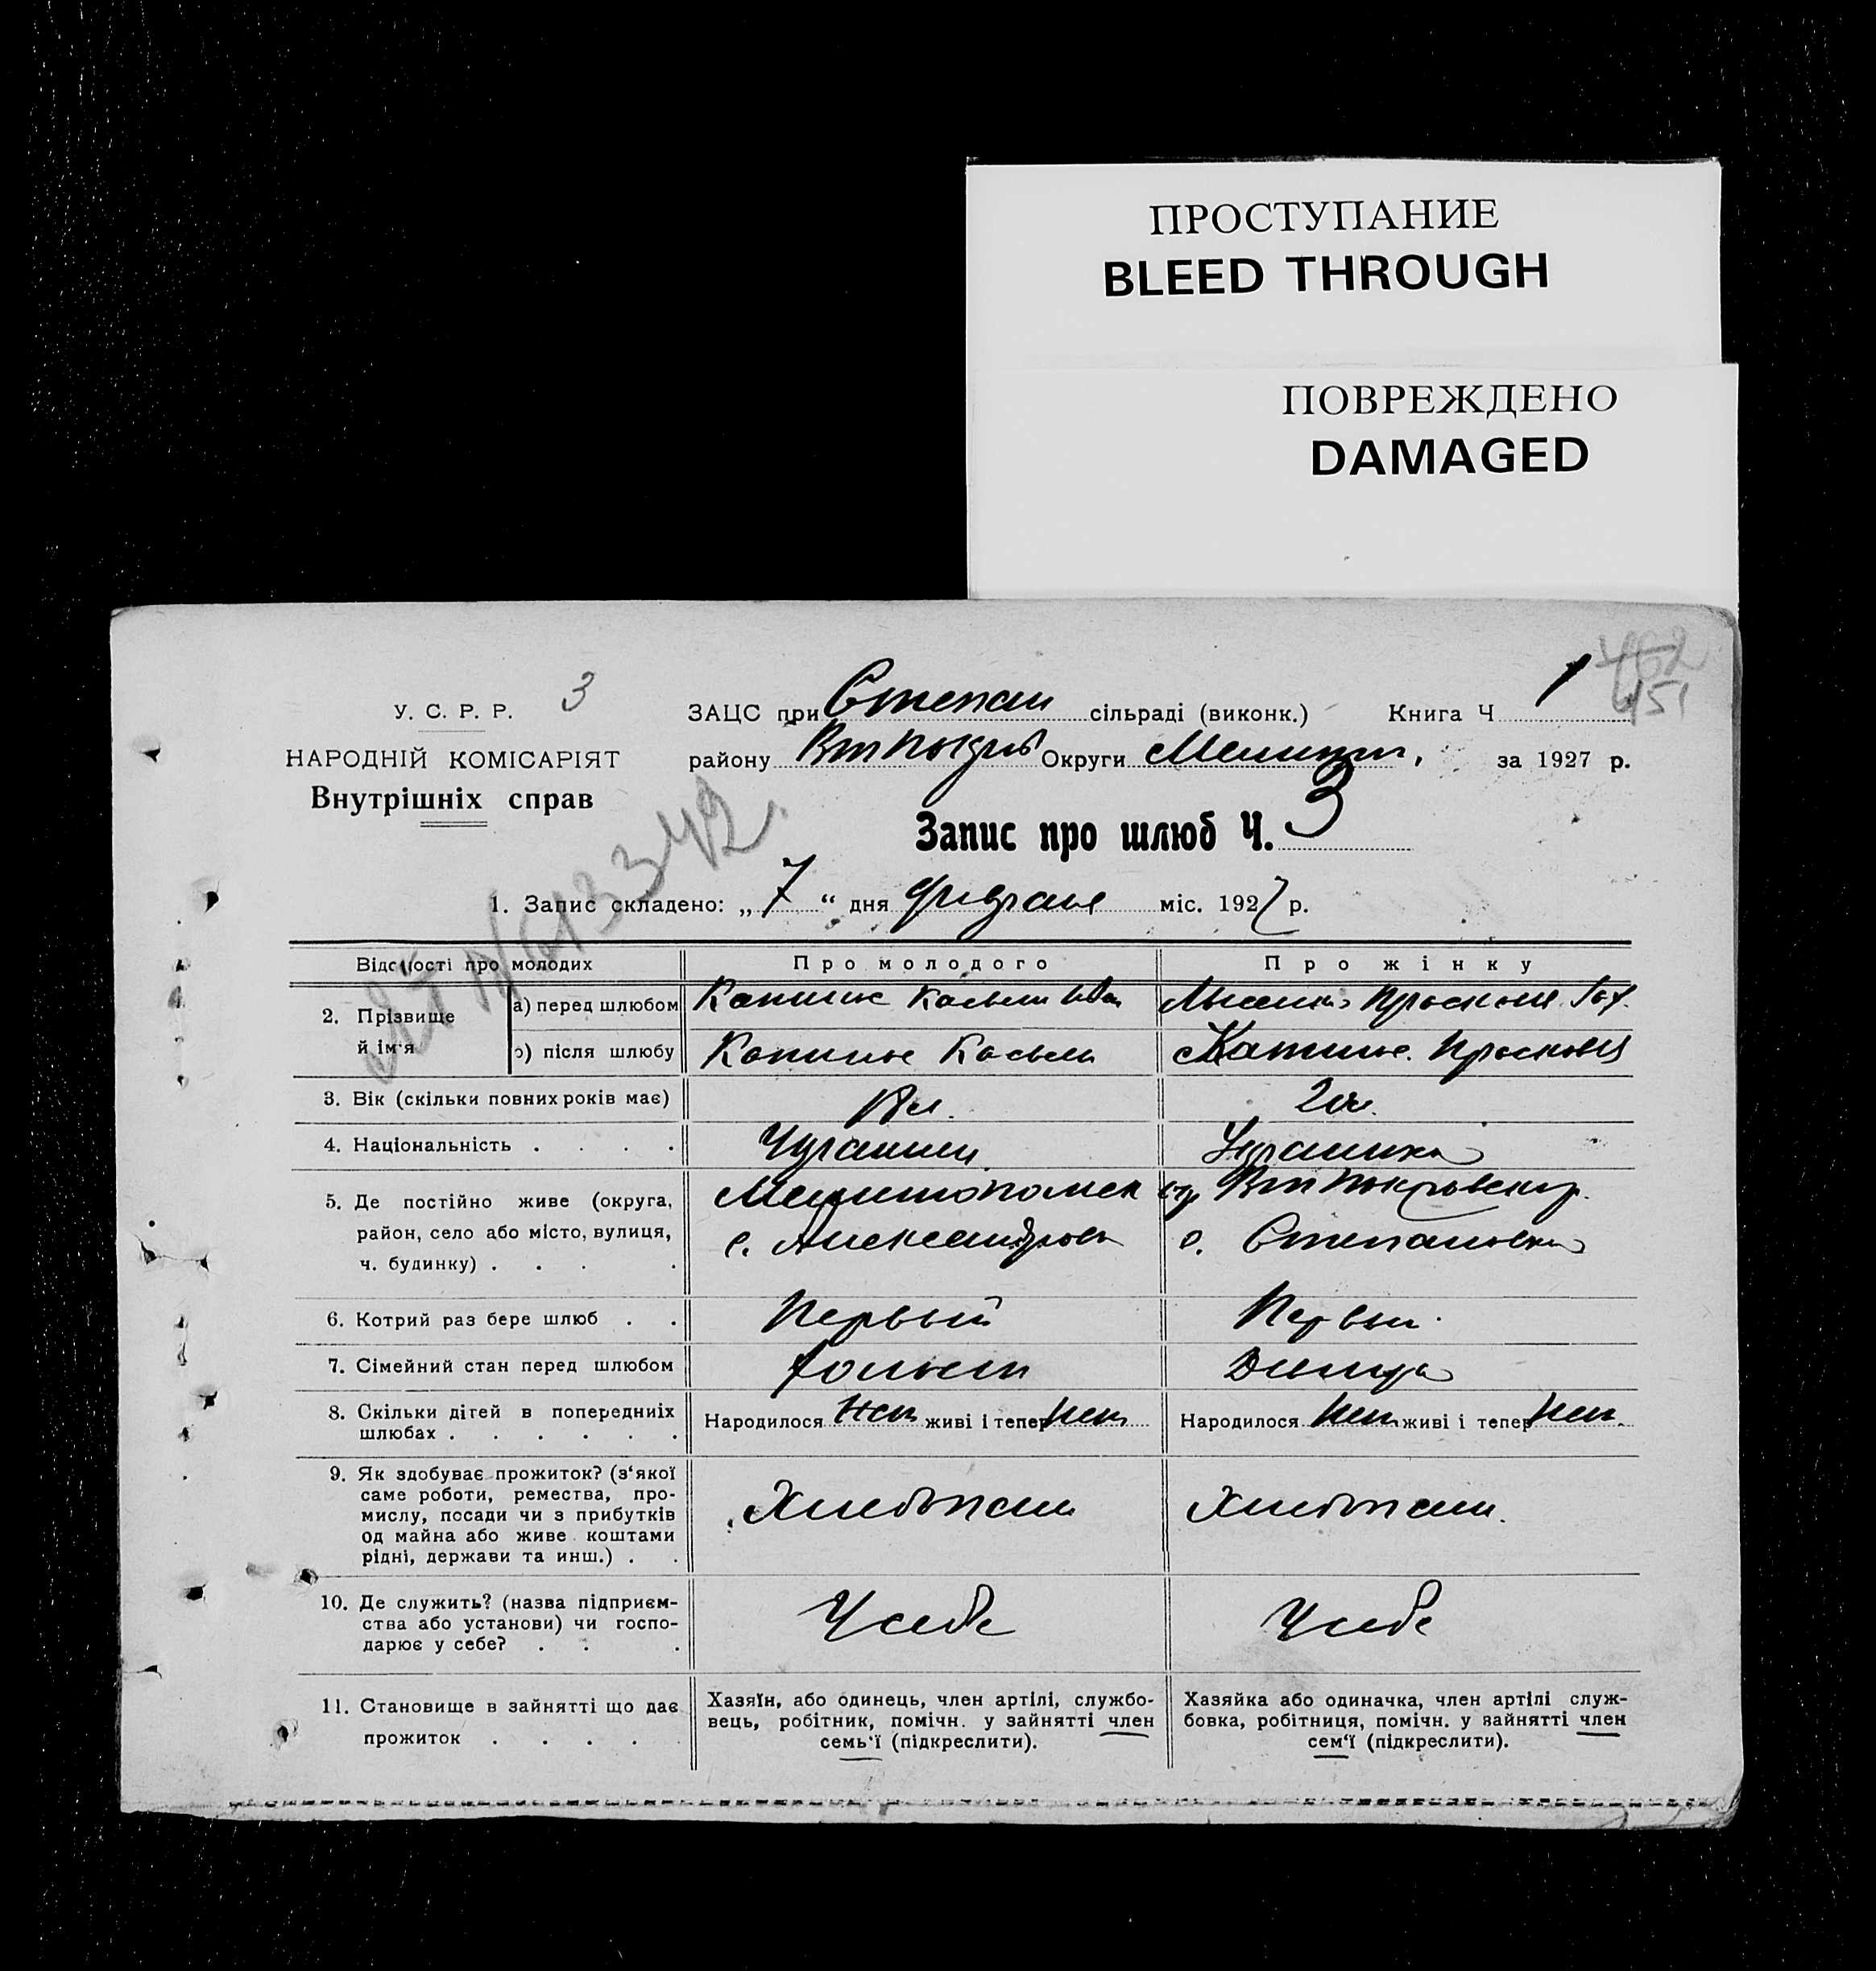 ПРОСТУПАНИЕ
BLEED THROUGH
ПОВРЕЖДЕНО
DAMAGED
У. С. Р. Р. 3
НАРОДНІЙ КОМІСАРІЯТ
Внутрішніх справ
ЗАЦС при Степан сільраді (виконк.) Книга Ч 1
451
району Округи Мелитоп, за 1927 р.
Запис про шлюб Ч. 3
1. Запис складено: „ 7 “ дня февраля міс. 1927 р.
Відомості про молодих Про молодого Про жінку
2. Прізвище й ім'я
а) перед шлюбом
б) після шлюбу Просковя
3. Вік (скільки повних років має) 18 л. 20 л.
4. Національність . . . . Украинец Украинка
5. Де постійно живе (округа, Мелитопольск окр Вт Покровск р.
район, село або місто, вулиця, с. Александровк с. Степановка
ч. будинку) . . . .
6. Котрий раз бере шлюб . . Первый Первый
7. Сімейний стан перед шлюбом Холост Девица
8. Скільки дітей в попередниіх Народилося нет живі і тепер нет Народилося нет живі і тепер нет
шлюбах . . . . . .
9. Як здобуває прожиток? (з'якої
саме роботи, ремества, про-
мислу, посади чи з прибутків Хлебопаш Хлебопаш.
од майна або живе коштами
рідні, держави та инш.) . .
10. Де служить? (назва підприєм-
ства або установи) чи госпо- У себе У себе
дарює у себе? . . .
11. Становище в зайнятті що дає
прожиток . . . . .
Хазяїн, або одинець, член артілі, службо-
вець, робітник, помічн. у зайнятті член
семь'ї (підкреслити).
Хазяйка або одиначка, член артілі служ-
бовка, робітниця, помічн. у зайнятті член
сем'ї (підкреслити).